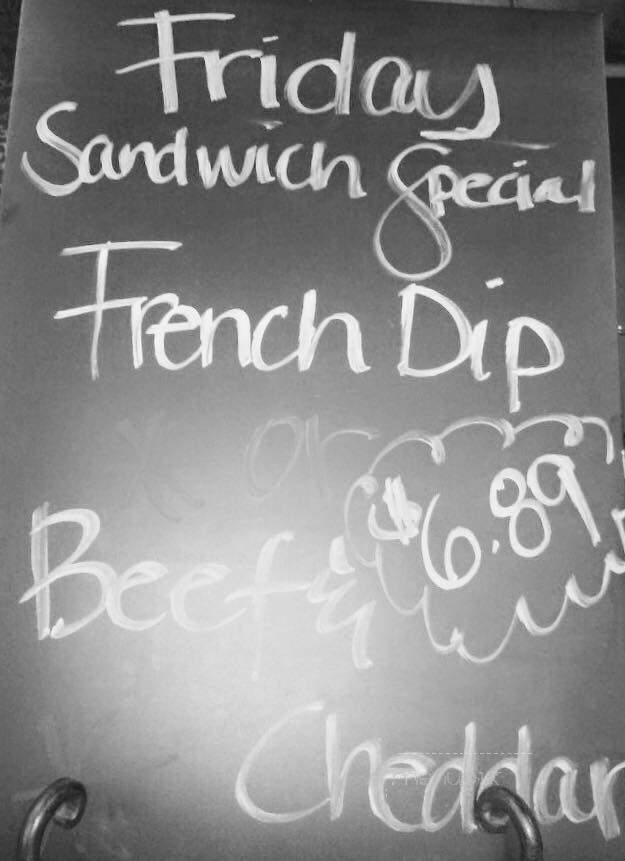 Friday
Sandwich Special
French Dip
or
$6.89
Beef &
Cheddar